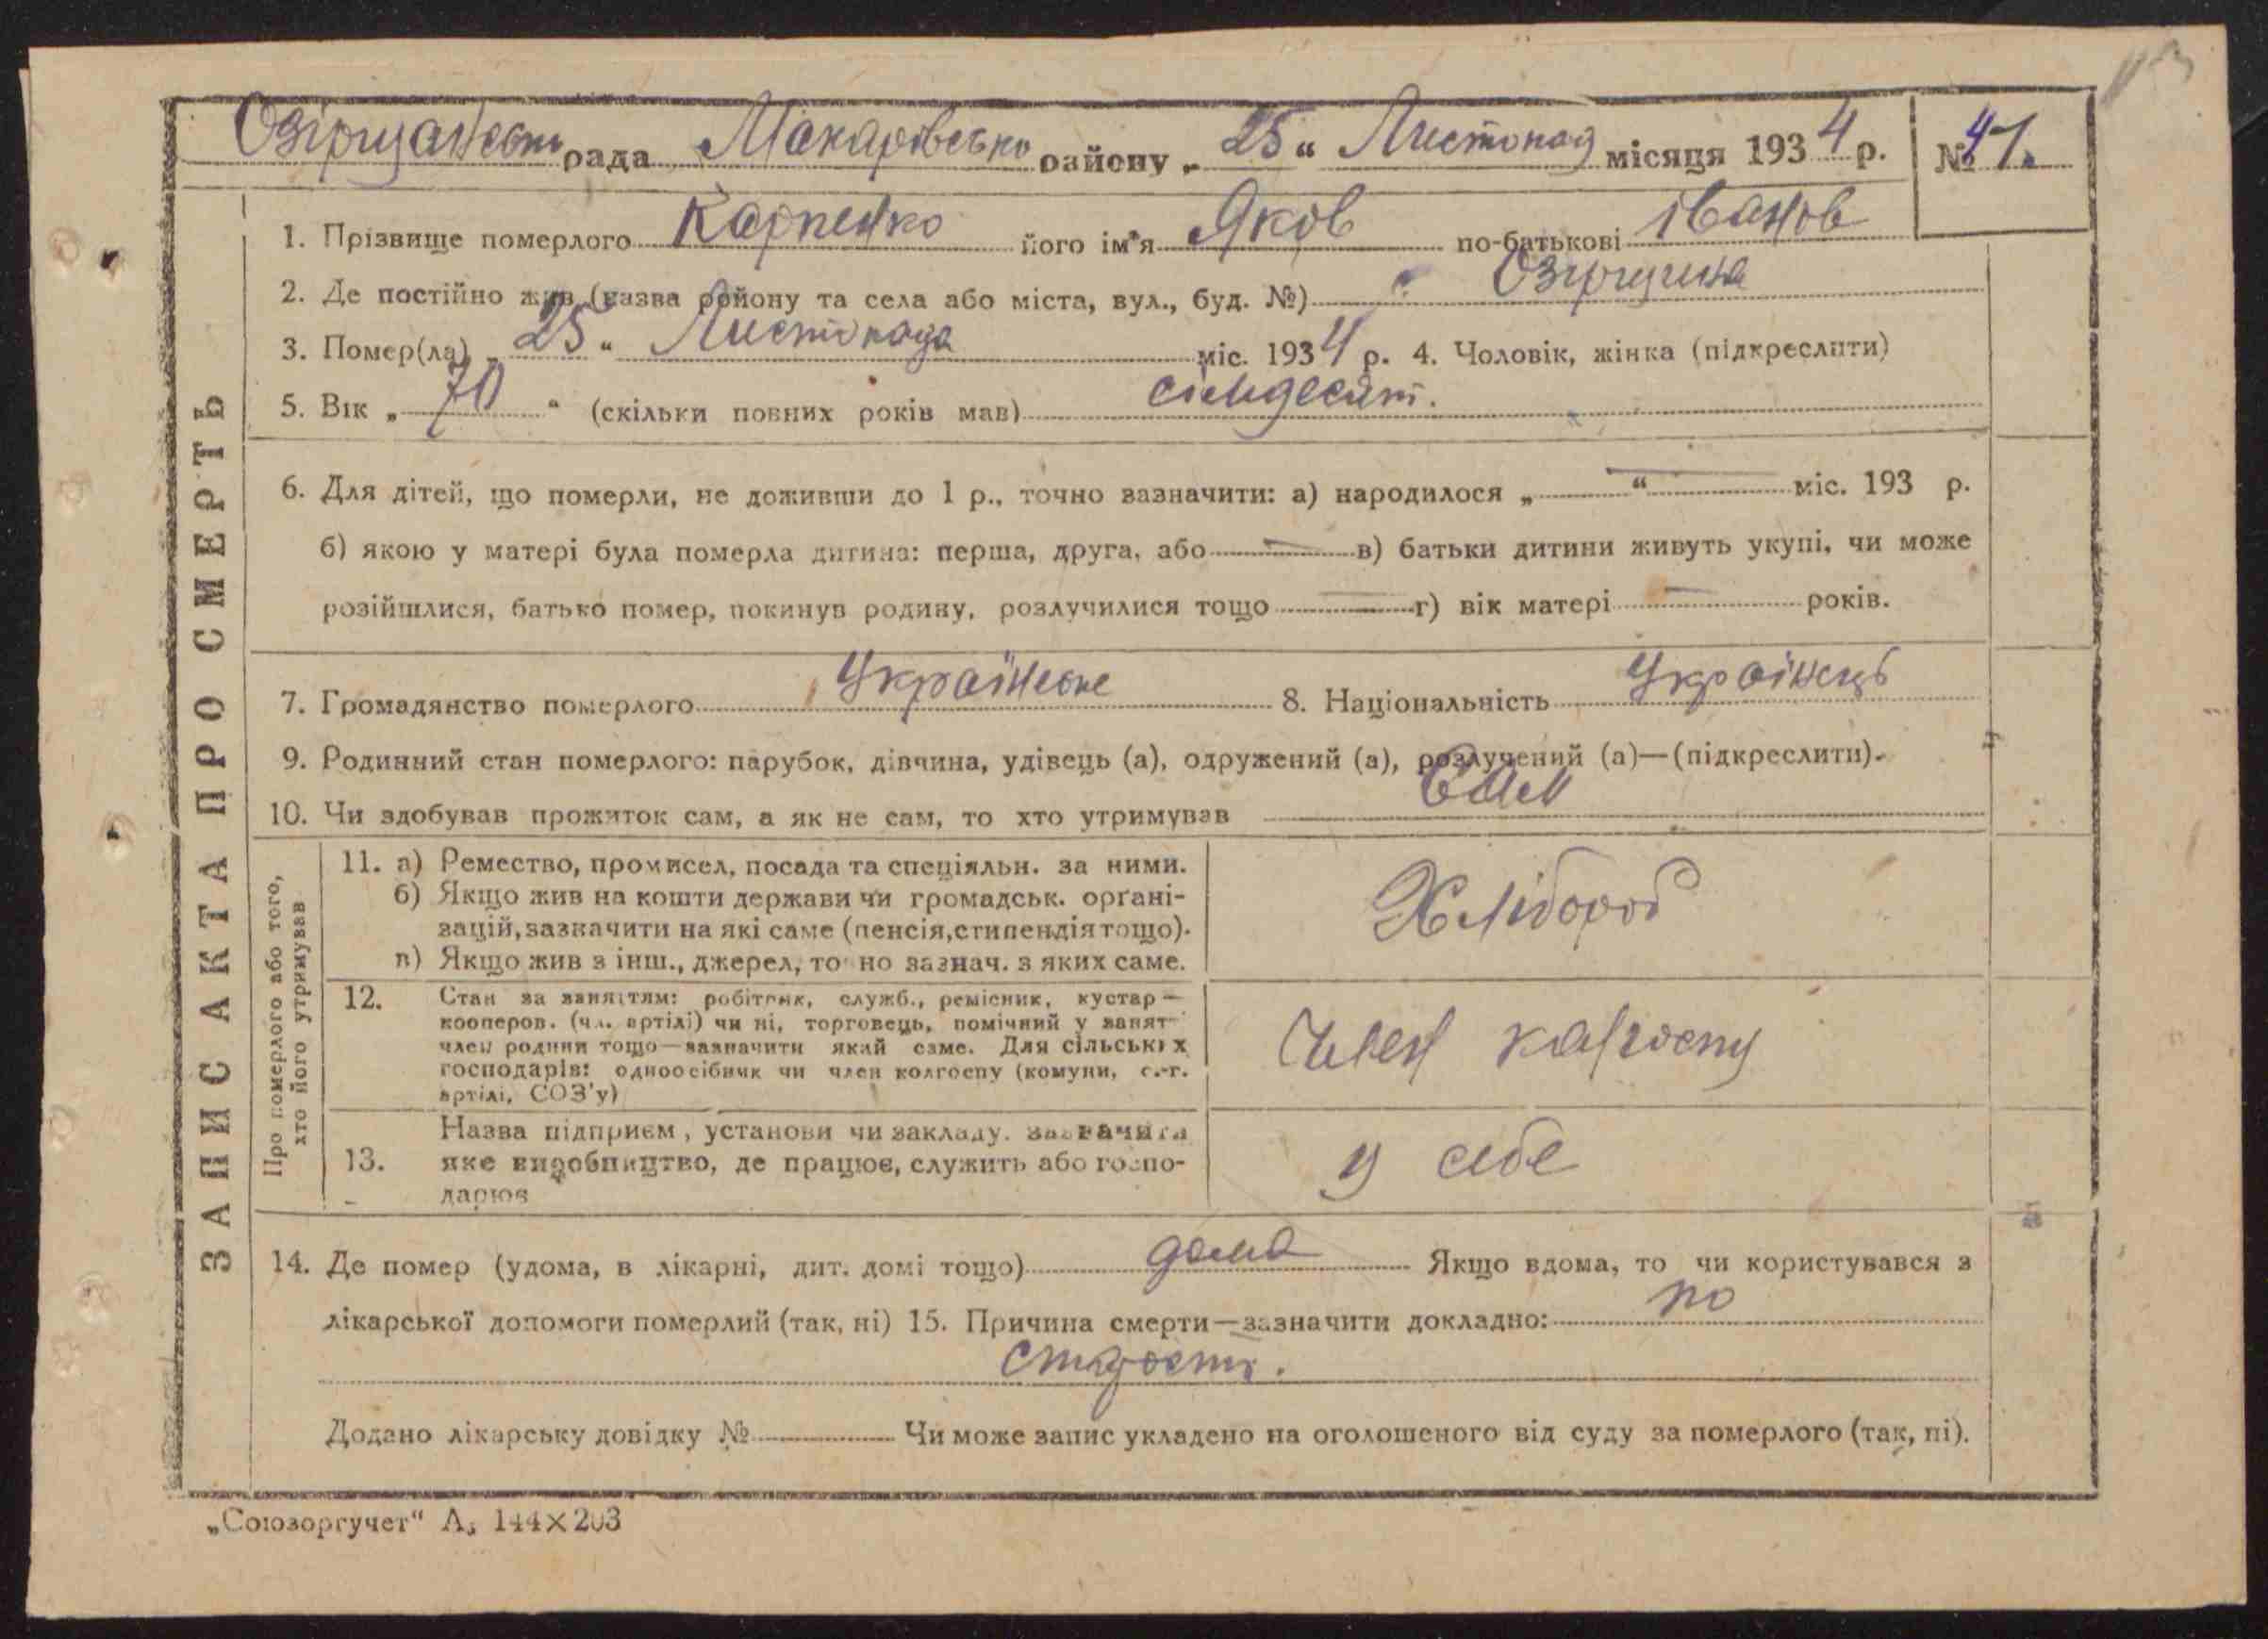 Озірщанськ рада Макарівсько району „ 25 “ Листопад місяця 1934 р. № 41.
1. Прізвище померлого Карпенко його ім'я Яков по-батькові Іванов
2. Де постійно жив (назва району та села або міста, вул., буд. №) с. Озірщина
3. Помер(ла) „ 25 “ Листопада міс. 1934 р. 4. Чоловік, жінка (підкреслити)
5. Вік „ 70 “ (скільки повних років мав) сімдесят.
6. Для дітей, що померли, не доживши до 1 р., точно зазначити: а) народилося „ — “ — міс. 193 р.
б) якою у матері була померла дитина: перша, друга, або — в) батьки дитини живуть укупі, чи може
розійшлися, батько помер, покинув родину, розлучилися тощо — г) вік матері — років.
7. Громадянство померлого Українське 8. Національність Українець
9. Родинний стан померлого: парубок, дівчина, удівець (а), одружений (а), розлучений (а)—(підкреслити).
10. Чи здобував прожиток сам, а як не сам, то хто утримував Сам
Про померлого або того,
хто його утримував
11. а) Ремество, промисел, посада та спеціяльн. за ними.
б) Якщо жив на кошти держави чи громадськ. органі-
зацій, зазначити на які саме (пенсія, стипендія тощо).
в) Якщо жив з інш., джерел, точно зазнач. з яких саме.
Хлібороб
12. Стан за заняттям: робітник, служб., ремісник, кустар—
кооперов. (чл. артілі) чи ні, торговець, помічний у занят-
член родини тощо—зазначити який саме. Для сільських
господарів: одноосібник чи член колгоспу (комуни, с.-г.
артілі, СОЗ'у)
Член калгоспу
13. Назва підприєм, установи чи закладу. зазначити
яке виробництво, де працює, служить або госпо-
дарює
у себе
14. Де помер (удома, в лікарні, дит. домі тощо) дома Якщо вдома, то чи користувався з
лікарської допомоги померлий (так, ні) 15. Причина смерти—зазначити докладно: по
старости.
Додано лікарську довідку № Чи може запис укладено на оголошеного від суду за померлого (так, ні).
ЗАПИС АКТА ПРО СМЕРТЬ
„Союзоргучет“ А₅ 144×203